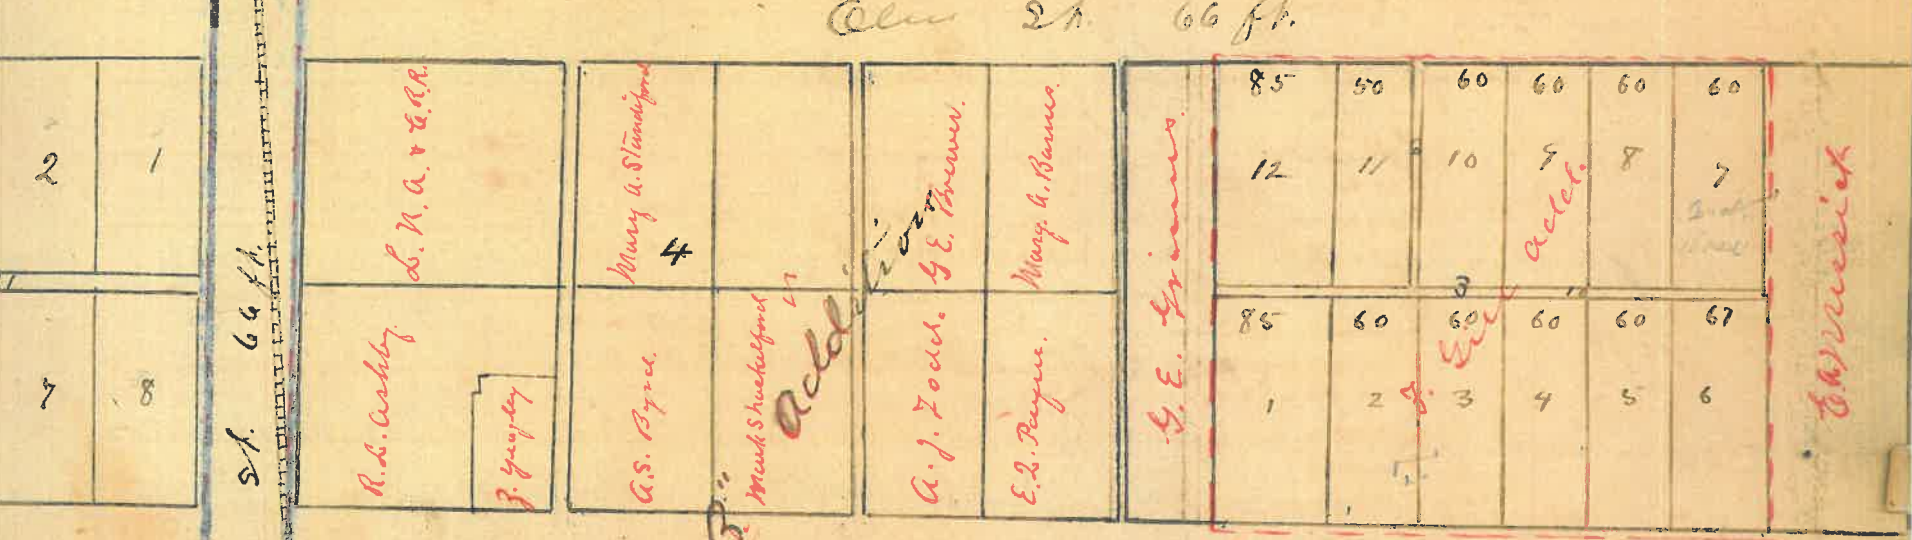 Elm St. 66 ft.
2 1
7 8
St. 66 ft.
L. N. A. & C. R.R.
R. L. Ashby
Z. Yeagley
Mary A. Standiford
4
A. S. Byrd.
Mark Shuckelford
Addition
G E. Brewer.
Mary. A. Barnes.
A. J. Todd.
E. L. Payne.
G. E. Grimes.
85 50 60 60 60 60
12 11 10 9 8 7
Add.
3
85 60 60 60 60 67
1 2 3 4 5 6